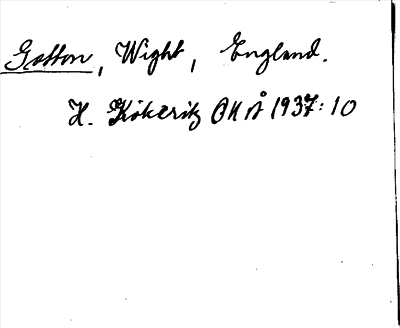 Gotton, Wight, England.
H. Kökeritz OUÅ 1937:10